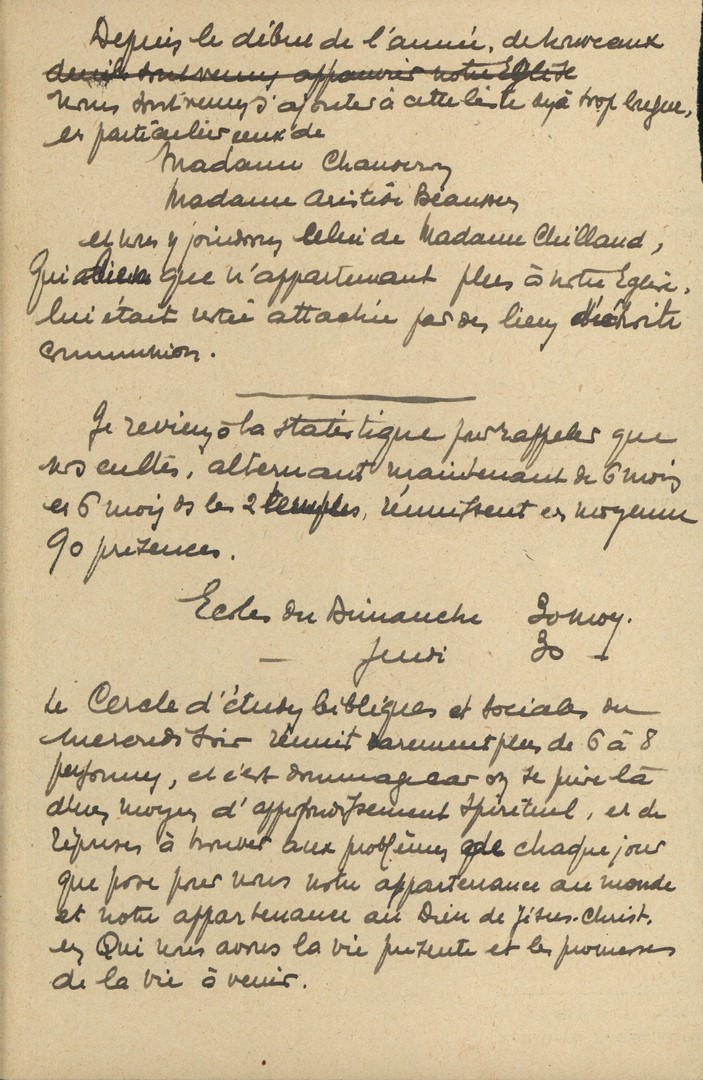 Depuis le début de l'année, de nouveaux
deuils sont venus appauvrir notre Eglise
nous sont venus s'ajouter à cette liste déjà trop longue,
en particulier ceux de
Madame
Madame Aristide
et nous y joindrons celui de Madame Chilland,
Qui bien que n'appartenant plus à notre Eglise,
lui était restée attachée par des liens d'étroite
communion.
Je reviens à la statistique pour rappeler que
nos cultes, alternant maintenant de 6 mois
en 6 mois ds les 2 temples, réunissent en moyenne
90 présences.
Ecoles du Dimanche 30 moy.
— Jeudi 30 —
Le Cercle d'études bibliques et sociales du
Mercredi soir réunit rarement plus de 6 à 8
personnes, et c'est dommage car on se prive là
d'un moyen d'approfondissement spirituel, et de
réponses à trouver aux problèmes de chaque jour
que pose pour nous notre appartenance au monde
et notre appartenance au Dieu de Jésus-Christ.
en Qui nous avons la vie présente et les promesses
de la vie à venir.